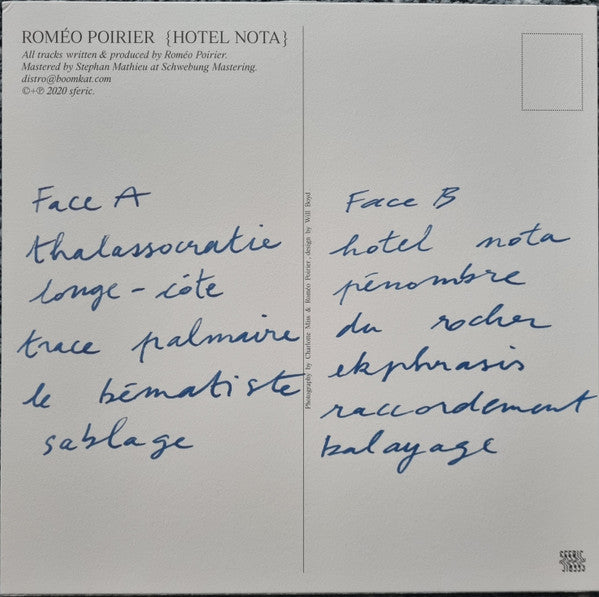 ROMÉO POIRIER {HOTEL NOTA}
All tracks written & produced by Roméo Poirier.
Mastered by Stephan Mathieu at Schwebung Mastering.
distro@boomkat.com
©+℗ 2020 sferic.
Face A
thalassocratie
longe-côte
trace palmaire
le bématiste
sablage
Photography by Charlotte Miss & Roméo Poirier, design by Will Boyd
Face B
hotel nota
pénombre
du rocher
ekphrasis
raccordement
balayage
SFERIC